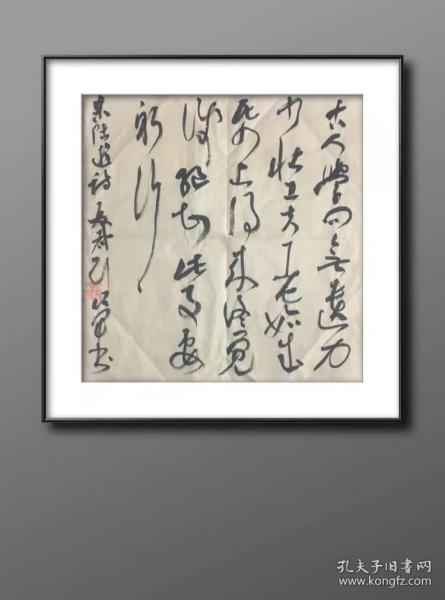 古人學問無遺力
少壮工夫老始成
纸上得来终觉
浅绝知此事要
躬行
录陆游诗 书
孔夫子旧书网
www.kongfz.com